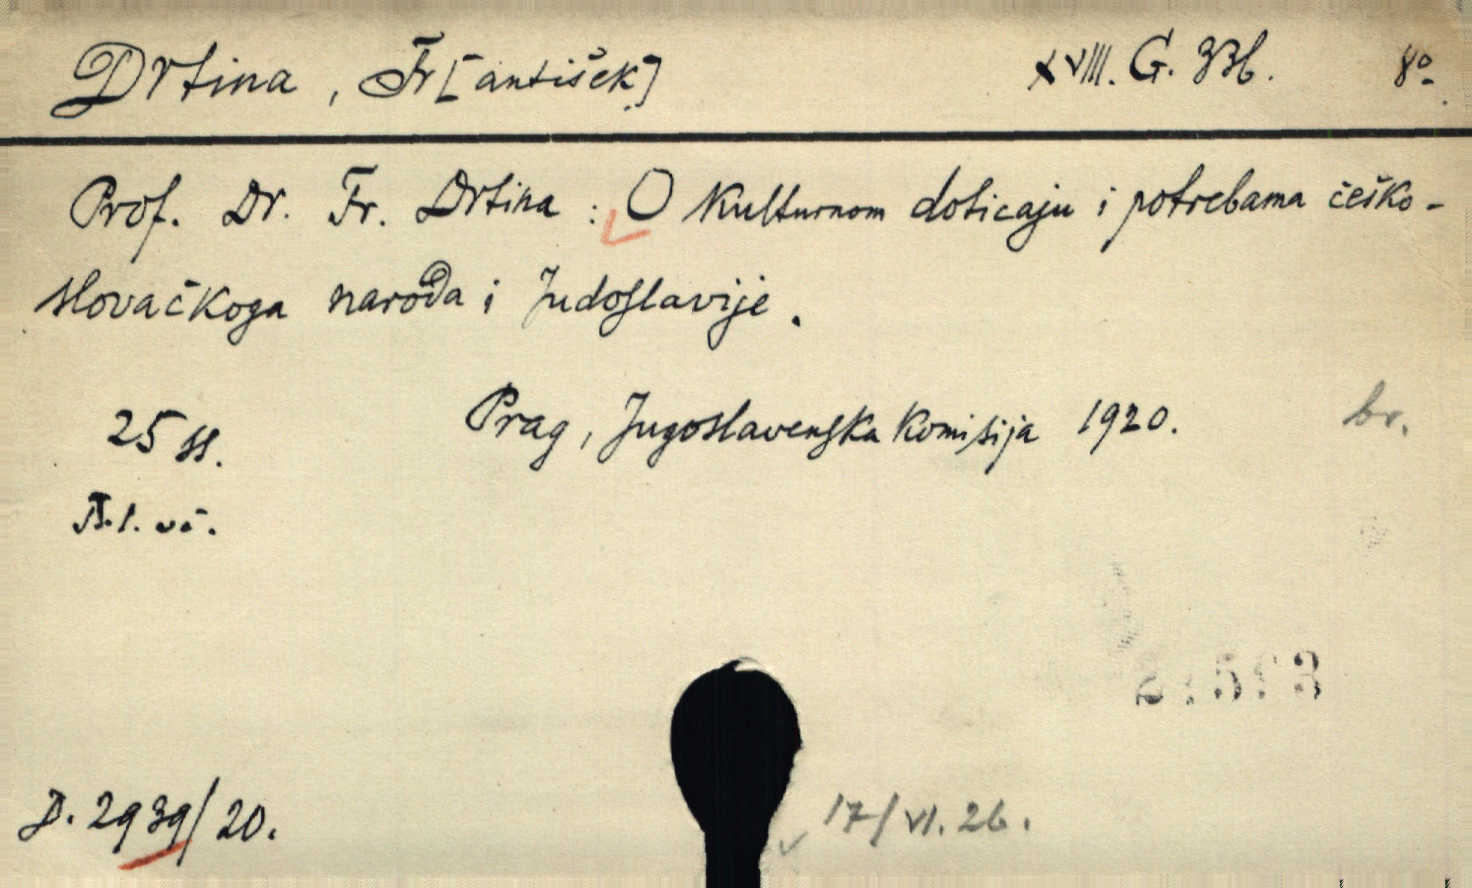 Drtina, Fr[antišek] XVIII. G. 33b. 8°.
Prof. Dr. Fr. Drtina : O kulturnom doticaju i potrebama češko-
slovačkoga naroda i Judoslavije.
25 ss. Prag, Jugoslavenska komisija 1920. br.
D. 2939/20. 17/VI. 26.